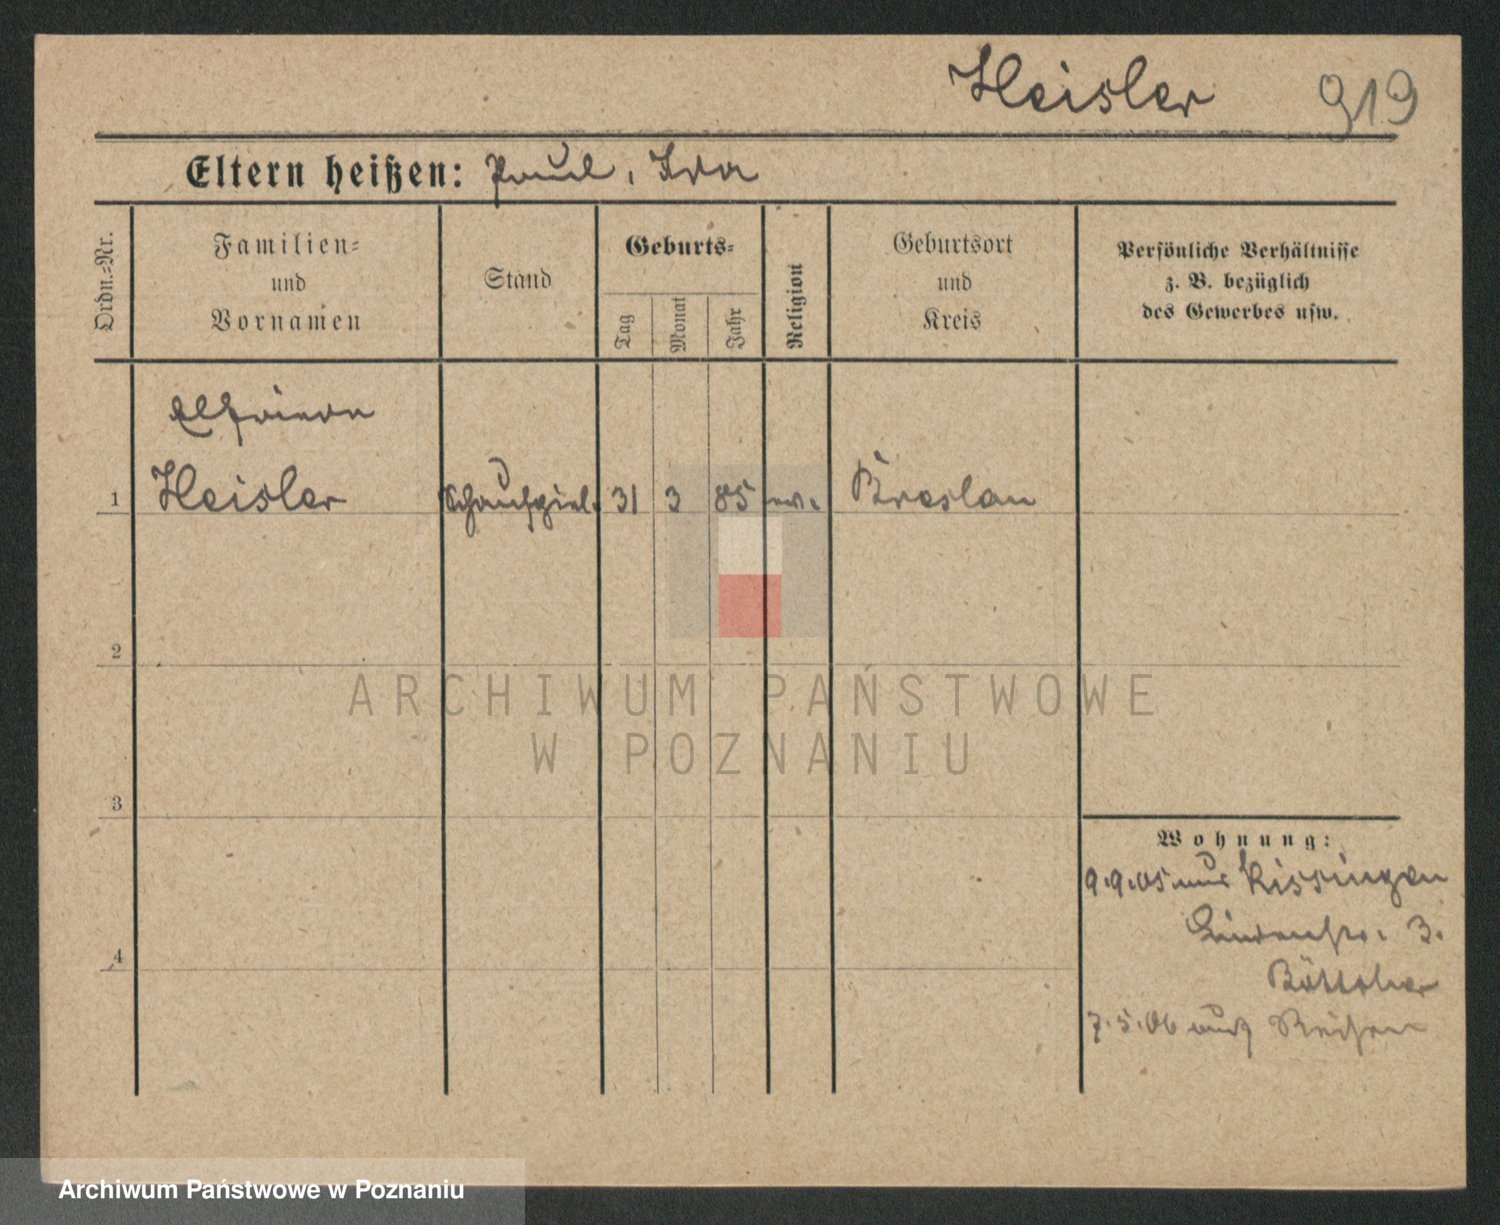 Heisler 919
Eltern heißen: Paul, Ida
Ordn.=Nr.
Familien=
und
Vornamen
Stand
Geburts=
Tag
Monat
Jahr
Religion
Geburtsort
und
Kreis
Persönliche Verhältnisse
z. B. bezüglich
des Gewerbes usw.
1
Heisler Schauspiel. 31 3 85 ev. Breslau
2
ARCHIWUM PAŃSTWOWE
W POZNANIU
3
Wohnung:
9.9.05 aus Kissingen
Lindenstr. 3.
Böttcher
4
7.5.06 auf Reisen
Archiwum Państwowe w Poznaniu